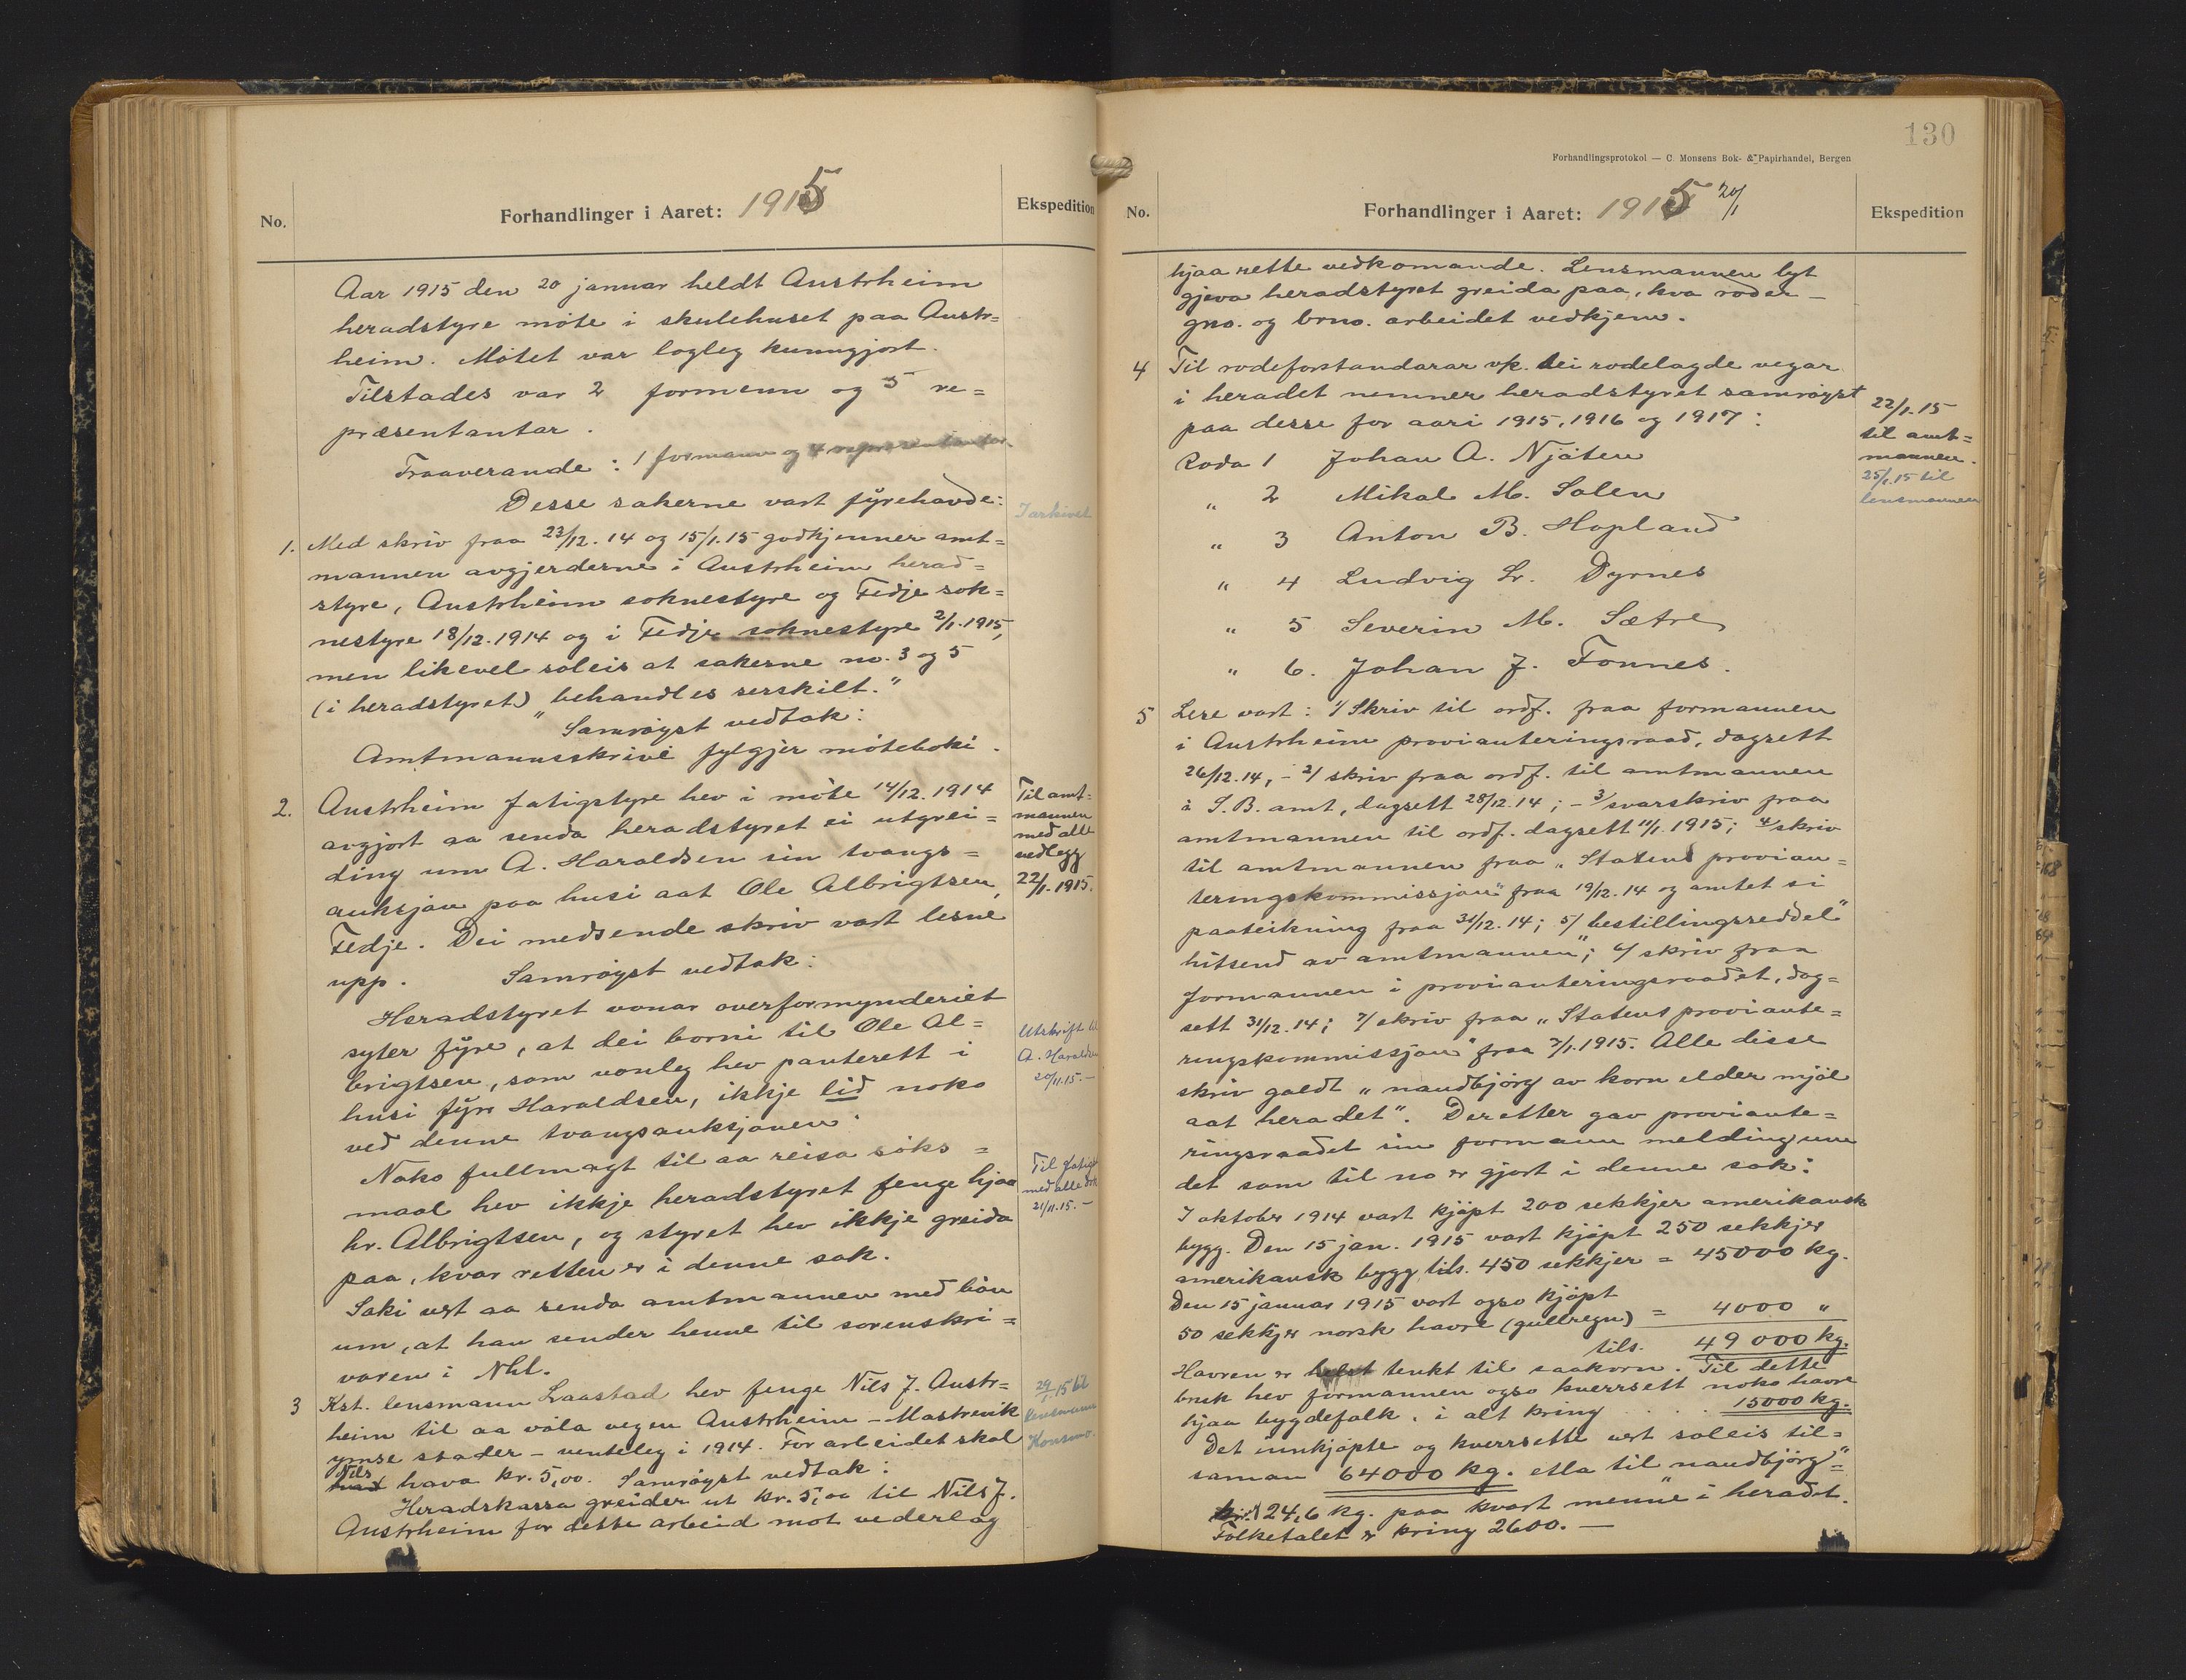 No.
Forhandlinger i Aaret: 1915
Ekspedition
Aar 1915 den 20 januar heldt Austrheim
heradstyre møte i skulehuset paa Austr=
heim. Møtet var logleg kunngjort.
Tilstades var 2 formenn og 5 re=
præsentantar.
Fraaverande: 1 formann og 4 representantar.
Desse sakerne vart fyrehavde:
I arkivet
1. Med skriv fraa 23/12. 14 og 15/1. 15 godkjenner amt=
mannen avgjerderne i Austrheim herad=
styre, Austrheim soknestyre og Fedje sok=
nestyre 18/12. 1914 og i Fedje soknestyre 2/1. 1915,
men likevel soleis at sakerne no. 3 og 5
(i heradstyret) behandles serskilt."
"Samrøyst vedtak:
Amtmannsskrivi fylgjer møteboki.
2. Austrheim fatigstyre hev i møte 14/12. 1914
avgjort aa senda heradstyret ei utgrei=
ding um A. Haraldsen sin tvangs=
auksjon paa husi aat Ole Albrigtsen,
Fedje. Dei medsende skriv vart lesne
upp. Samrøyst vedtak:
Til amt=
mannen
med alle
vedlegg
22/1. 1915.
Heradstyret vonar overformynderiet
syter fyre, at dei borni til Ole Al=
brigtsen, som vonleg hev panterett i
husi fyre Haraldsen, ikkje lid noko
ved denne tvangsauksjonen
Utskrift til
A. Haraldsen
20/11. 15.—
Noko fullmagt til aa reisa søks=
maal hev ikkje heradstyret fenge hjaa
hr. Albrigtsen, og styret hev ikkje greida
paa, kvar retten er i denne sak.
Til fatigst
med alle dok
21/11. 15.—
Saki vert aa senda amtmannen med bøn
um, at han sender henne til sorenskri=
varen i Nhl.
3 Kst. lensmann Laastad hev fenge Nils J. Austr=
heim til aa vøla vegen Austrheim – Mastrevik
ymse stader – venteleg i 1914. For arbeidet skal
Nils
hava kr. 5,00. Samrøyst vedtak:
Heradskassa greider ut kr. 5,00 til Nils J.
Austrheim for dette arbeid mot vederlag
29/1. 15 til
lensmann
130
Forhandlingsprotokol — C. Monsens Bok- & Papirhandel, Bergen
No.
Forhandlinger i Aaret: 1915 20/1
Ekspedition
hjaa rette vedkomande. Lensmannen lyt
gjeva heradstyret greida paa, kva roder –
gno. og brno. arbeidet vedkjem.
4 Til rodeforstandarar vk. dei rodelagde vegar
i heradet nemner heradstyret samrøyst
paa desse for aari 1915, 1916 og 1917:
22/1. 15
til amt=
mannen.
25/1. 15 til
lensmannen
Roda 1 Johan A. Njøten
" 2 Mikal M. Solem
" 3 Anton B. Hopland
" 4 Ludvig L. Dyrnes
" 5 Severin M. Sætre
" 6. Johan J. Fonnes.
5 Lese vart: 1/ Skriv til ordf. fraa formannen
i Austrheim provianteringsraad, dagsett
26/12. 14, – 2/ skriv fraa ordf. til amtmannen
i S. B. amt, dagsett 28/12. 14; – 3/ svarskriv fraa
amtmannen til ordf. dagsett 11/1. 1915; 4/ skriv
til amtmannen fraa "Statens provian=
teringskommissjon" fraa 19/12. 14 og amtet si
paateikning fraa 31/12. 14; 5/ bestillingsseddel"
hitsend av amtmannen"; 6/ skriv fraa
formannen i provianteringsraadet, dag=
sett 31/12. 14; 7/ skriv fraa "Statens proviante=
ringskommissjon" fraa 7/1. 1915. Alle disse
skriv galdt "naudbjørg av korn elder mjøl
aat heradet". Deretter gav proviante=
ringsraadet sin formann melding um
det som til no er gjort i denne sak:
I oktober 1914 vart kjøpt 200 sekkjer amerikansk
bygg. Den 15 jan. 1915 vart kjøpt 250 sekkjer
amerikansk bygg, tils. 450 sekkjer = 45000 kg.
Den 15 januar 1915 vart ogso kjøpt
50 sekkjer norsk havre (gullregn) = 4000 "
tils. 49 000 kg.
Havren er helst tenkt til saakorn. Til dette
bruk hev formannen ogso kverrsett noko havre
hjaa bygdefolk, i alt kring . . . . 15000 kg.
Det innkjøpte og kverrsette vert soleis til=
saman 64000 kg. etla til naudbjørg" =
24,6 kg. paa kvart menne" i heradet.
Folketalet er kring 2600. —